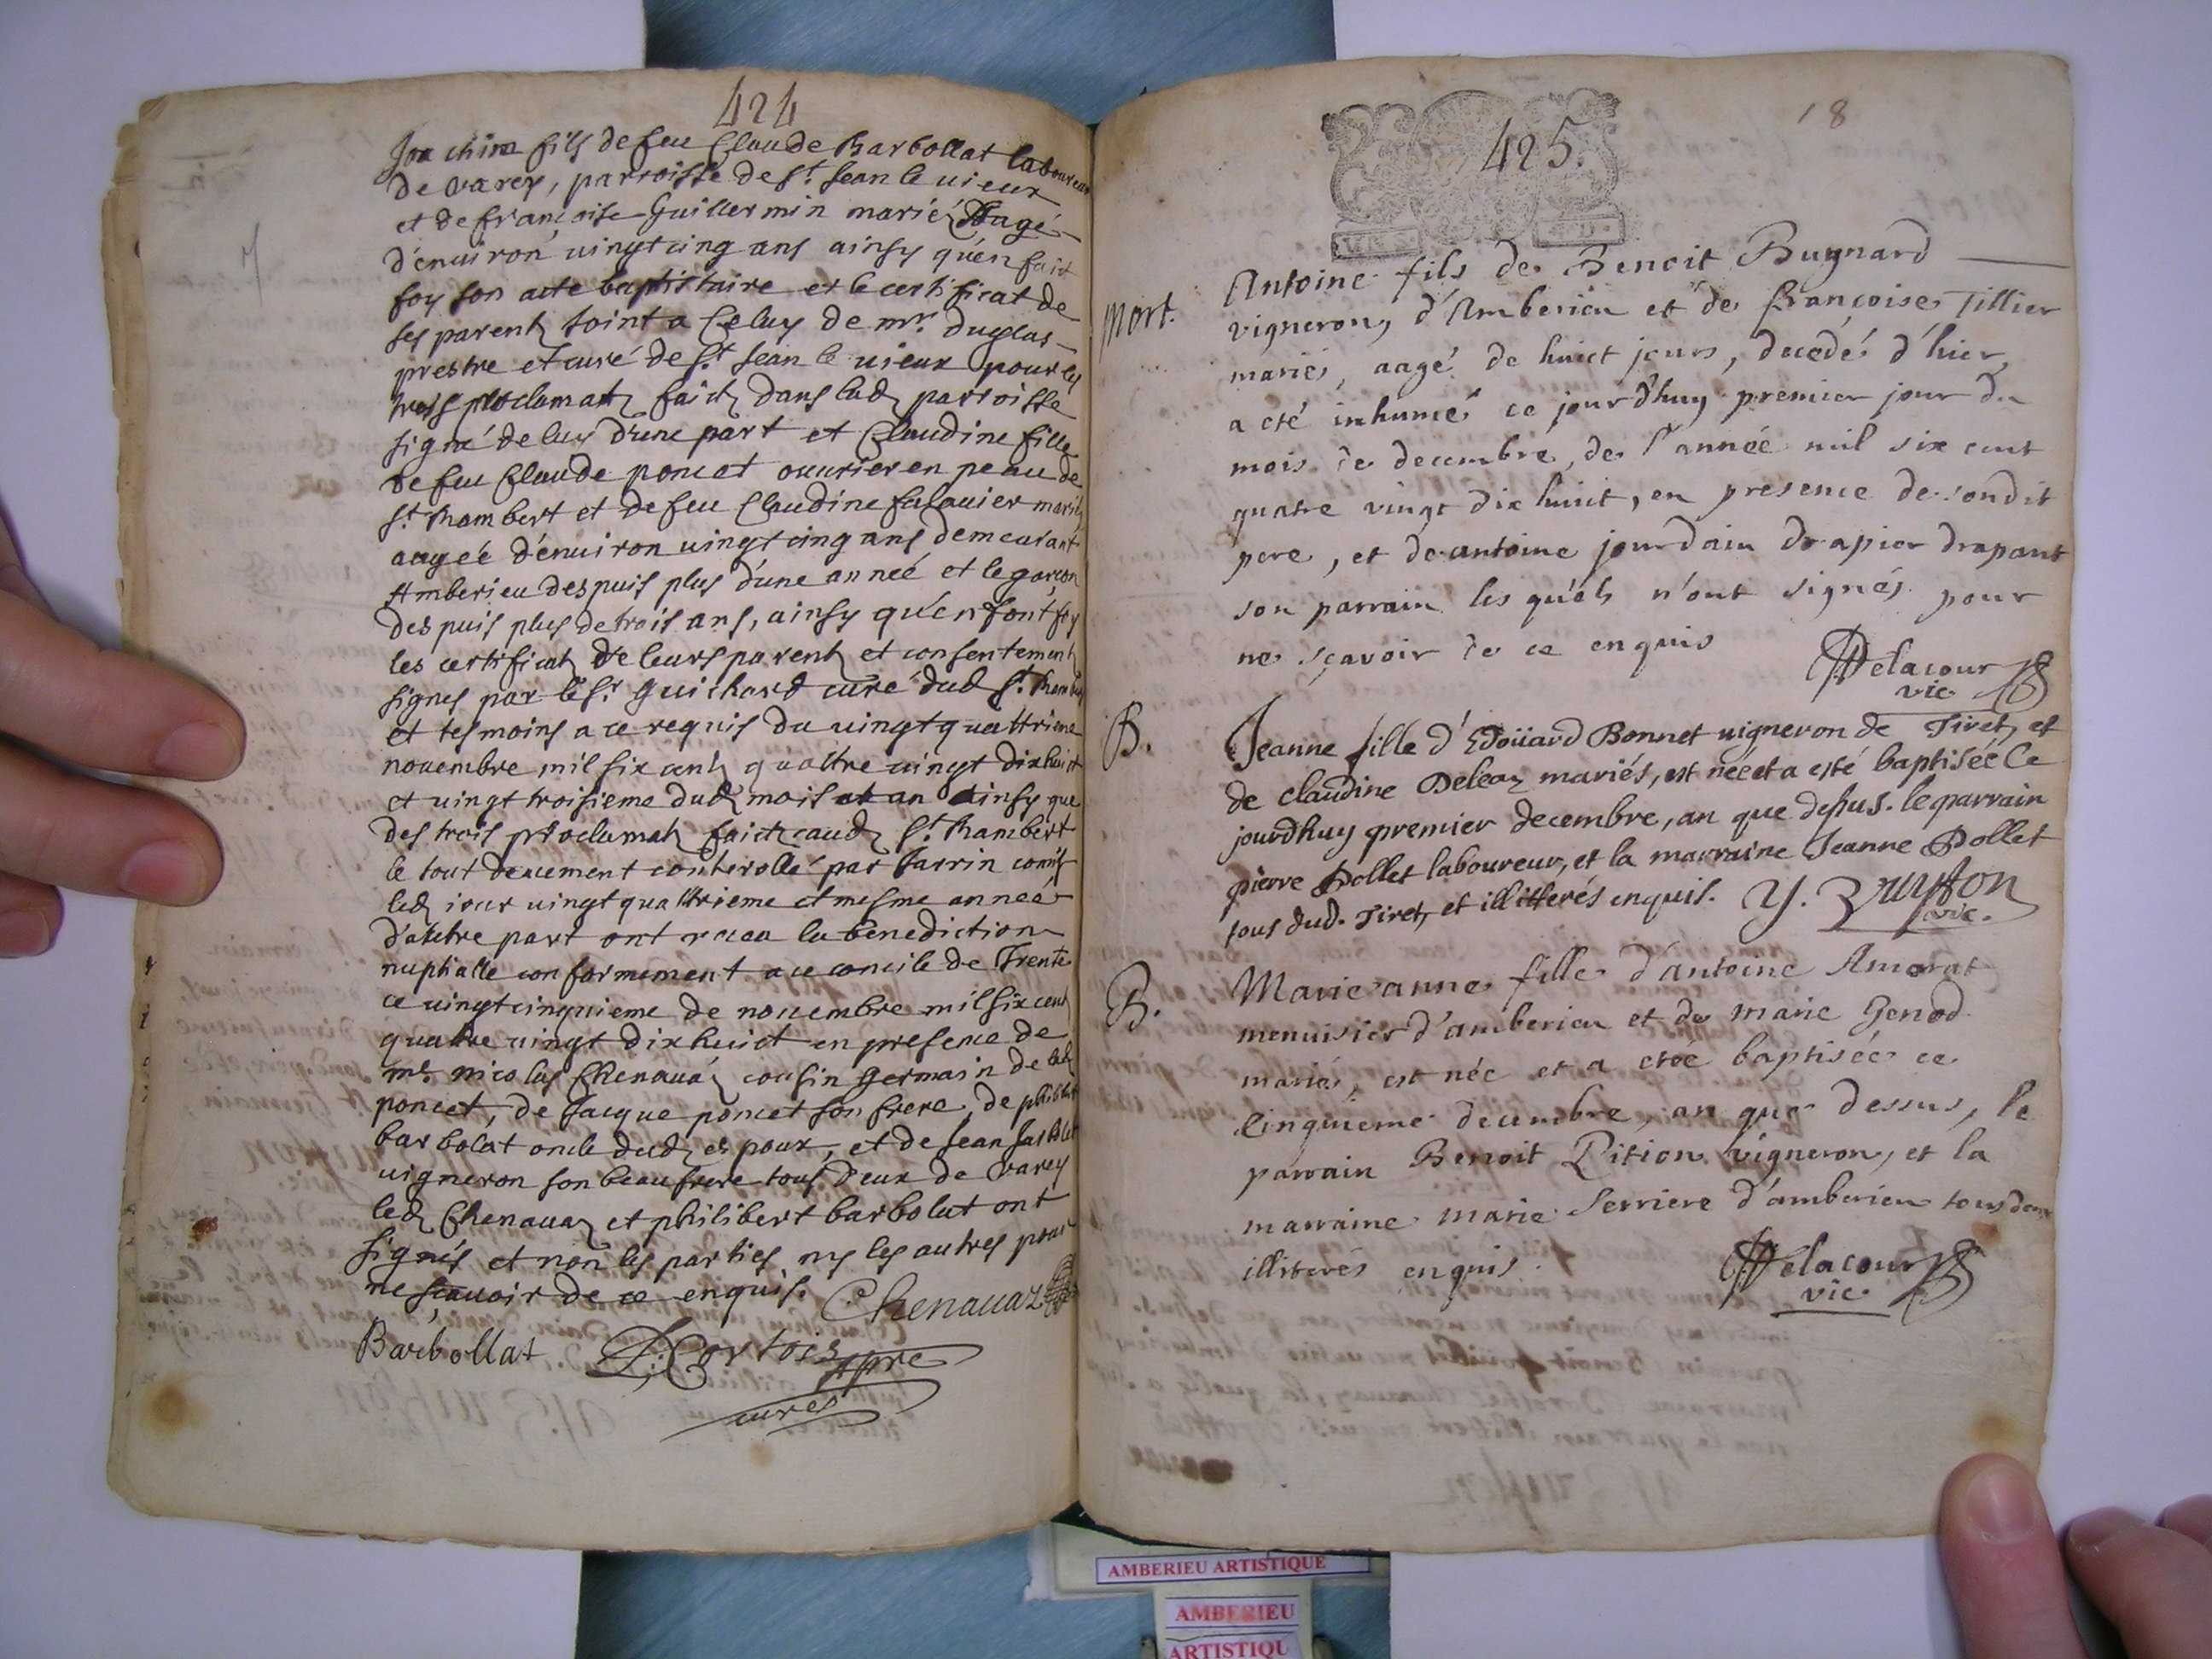 424
Joachim fils de feu Claude Barbollat laboureur
de varey, parroisse de St Jean le uieux
et de françoise Guillermin marié aagé
d'enuiron uingt cinq ans ainsy qu'en fait
foy son acte baptistaire et le certificat de
ses parents joint a Celuy de mr.
prestre et curé de St Jean le uieux pour les
trois proclamats faicts dans lad parroisse
signé de luy d'une part et Claudine fille
de feu Claude poncet ouurier en peau de
St Rambert et de feu Claudine mariés
aagéé d'enuiron uingt cinq ans demeurant
Amberieu despuis plus d'une année et le garçon
despuis plus de trois ans, ainsy qu'en font foy
les certificats de leurs parents et consentements
signes par le Sr Guichard curé dud St Rambert
et tesmoins a ce requis du uingt quattrieme
nouembre mil six cents quattre uingt dix huict
et uingt troisieme dud mois et an ainsy que
des trois proclamats faicts aud St Rambert
le tout deuement conterollé par Jarrin comis
led iour uingt quattrieme et mesme anneé
d'autre part ont receu la benediction
nuptialle conformement a ce concile de Trente
ce uingt cinquieme de nouembre mil six cents
quattre uingt dix huict en presence de
mr. nicolas Chenauaz cousin germain de lad
poncet, de Jacque poncet son frere, de philibert
barbolat oncle dud espoux, et de Jean
uigneron son beaufrere tous deux de varey
led Chenauaz et philibert barbolat ont
signés et non les parties ny les autres pour
ne sçauoir de ce enquis. Chenauaz
Barbollat Cortois pre
curé
18
425.
mort.
Antoine fils de Benoit Bugnard
vigneron, d'Amberieu et de françoise Tillier
mariés, aagé de huict jours, decedé d'hier,
a eté inhumé ce jourd'huy premier jour du
mois de decembre, de l'année mil six cent
quatre vingt dix huit, en presence de sondit
pere, et de antoine jourdain drapier drapant
son parrain les quels n'ont signés pour
ne sçavoir de ce enquis
Delacour
vic.
B.
Jeanne fille d'Edoüard Bonnet uigneron de Tiret, et
de claudine Deleaz mariés, est néé et a esté baptiséé Ce
jourdhuy premier decembre, an que dessus. le parrain
pierre Dollet laboureur, et la marraine Jeanne Dollet
tous dud. Tiret, et illitterés enquis. Y. Bruyson
vic.
B.
Marie anne fille d'antoine Amarat
menuisier d'amberieu et de marie Genod
mariés, est née et a etéé baptisée ce
cinquieme decembre, an que dessus, le
parrain Benoit Pition vigneron, et la
marraine marie Serriere d'amberieu tous deux
illiterés enquis.
Delacour
vic.
AMBERIEU ARTISTIQUE
AMBERIEU
ARTISTIQU